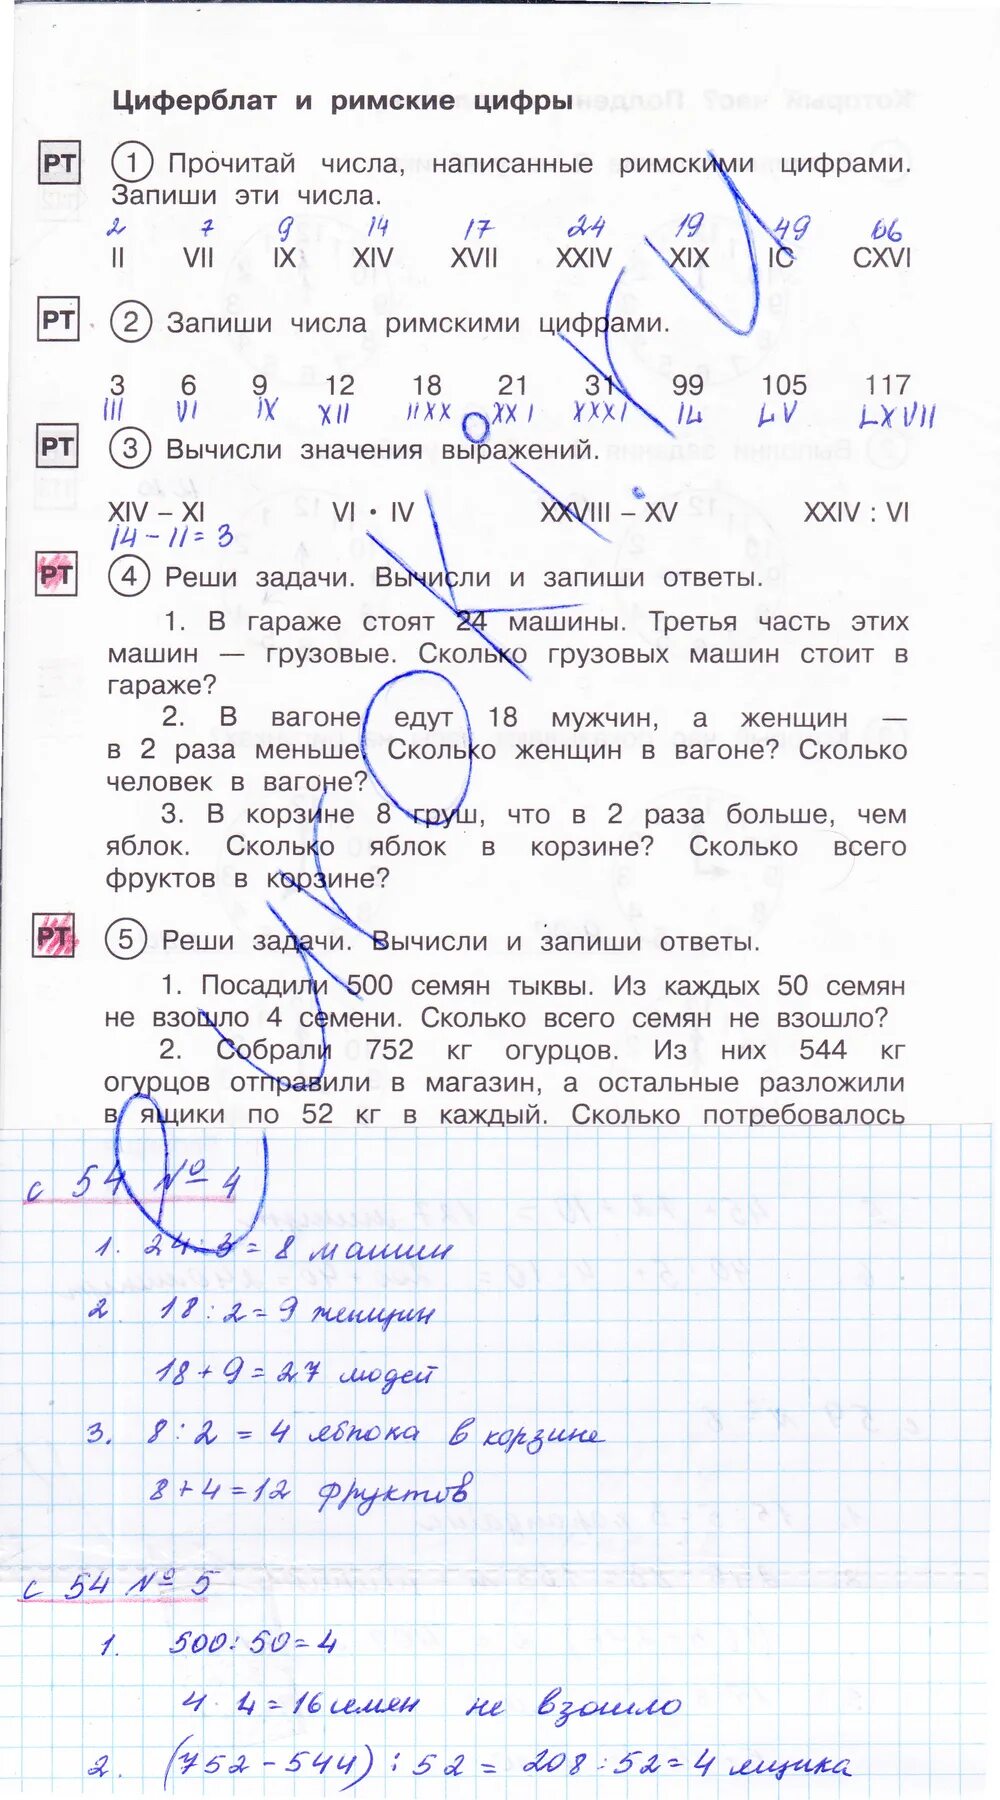 Циферблат и римские цифры
РТ 1 Прочитай числа, написанные римскими цифрами.
Запиши эти числа.
2 7 9 14 17 24 19 49 66
II VII IX XIV XVII XXIV XIX IC CXVI
РТ 2 Запиши числа римскими цифрами.
3 6 9 12 18 21 31 99 105 117
III VI IX XII IIXX XXI XXXI IL LV LXVII
РТ 3 Вычисли значения выражений.
XIV – XI VI • IV XXVIII – XV XXIV : VI
14 – 11 = 3
РТ 4 Реши задачи. Вычисли и запиши ответы.
1. В гараже стоят 24 машины. Третья часть этих
машин — грузовые. Сколько грузовых машин стоит в
гараже?
2. В вагоне едут 18 мужчин, а женщин —
в 2 раза меньше. Сколько женщин в вагоне? Сколько
человек в вагоне?
3. В корзине 8 груш, что в 2 раза больше, чем
яблок. Сколько яблок в корзине? Сколько всего
фруктов в корзине?
РТ 5 Реши задачи. Вычисли и запиши ответы.
1. Посадили 500 семян тыквы. Из каждых 50 семян
не взошло 4 семени. Сколько всего семян не взошло?
2. Собрали 752 кг огурцов. Из них 544 кг
огурцов отправили в магазин, а остальные разложили
в ящики по 52 кг в каждый. Сколько потребовалось
с 54 № 4
1. 24 : 3 = 8 машин
2 18 : 2 = 9 женщин
18 + 9 = 27 людей
3. 8 : 2 = 4 яблока в корзине
8 + 4 = 12 фруктов
с 54 № 5
1. 500 : 50 = 4
4 · 4 = 16 семян не взошло
2. (752 – 544) : 52 = 208 : 52 = 4 ящика